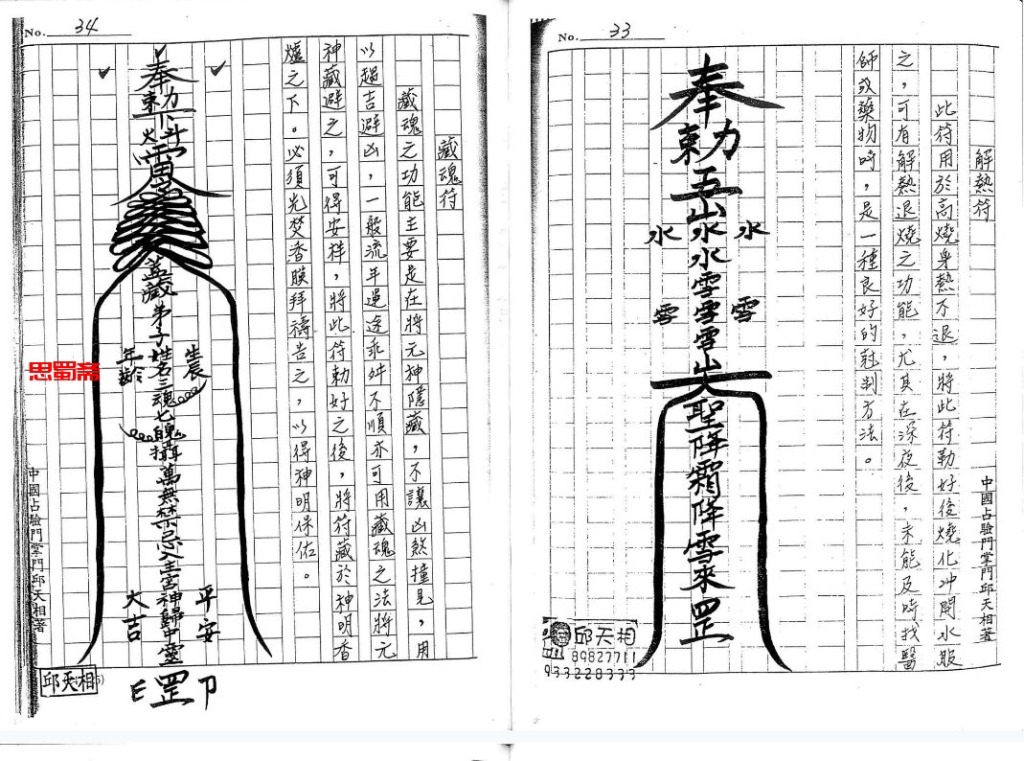 No. 33
解熱符
此符用於高燒身熱不退，將此符勅好後燒化沖開水服
之，可有解熱退燒之功能，尤其在深夜後，未能及時找醫
師或藥物時，是一種良好的尅制方法。
奉
勅
水 水 水
水
雪 雪 雪
雪
雪
聖降霜降雪來罡
中國占驗門掌門邱天相著
邱天相
89827711
933228333
No. 34
藏魂符
藏魂之功能主要是在將元神隱藏，不讓凶煞撞見，用
以趨吉避凶，一般流年運途乖舛不順亦可用藏魂之法將元
神藏避之，可得安祥，將此符勅好之後，將符藏於神明香
爐之下。必須先焚香膜拜禱告之，以得神明保佑。
奉
勅
火 斗
蓋藏弟子姓名三魂七魄攝萬無禁忌入主宮神歸中靈罡
生辰
年齡
平安
大吉
思蜀齋
中國占驗門掌門邱天相著
邱天相